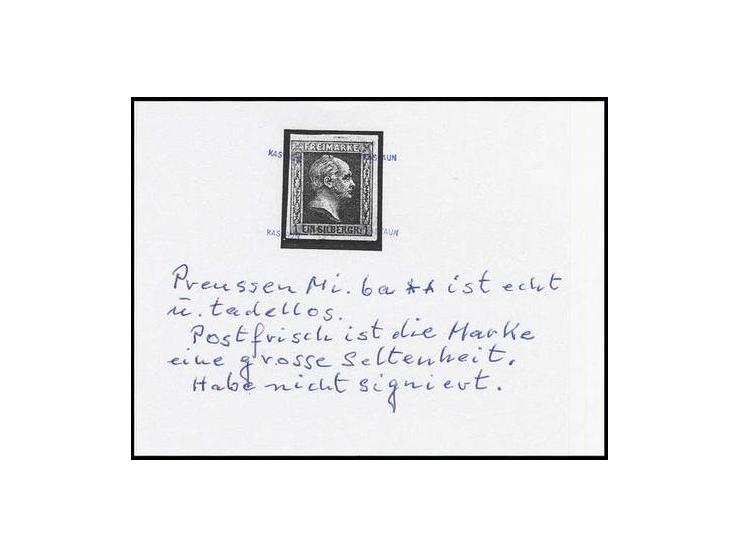 KASTAUN KASTAUN
FREIMARKE
1 EIN SILBERGR. 1
KASTAUN KASTAUN
Preussen Mi. 6a ** ist echt
u. tadellos.
Postfrisch ist die Marke
eine grosse Seltenheit.
Habe nicht signiert.